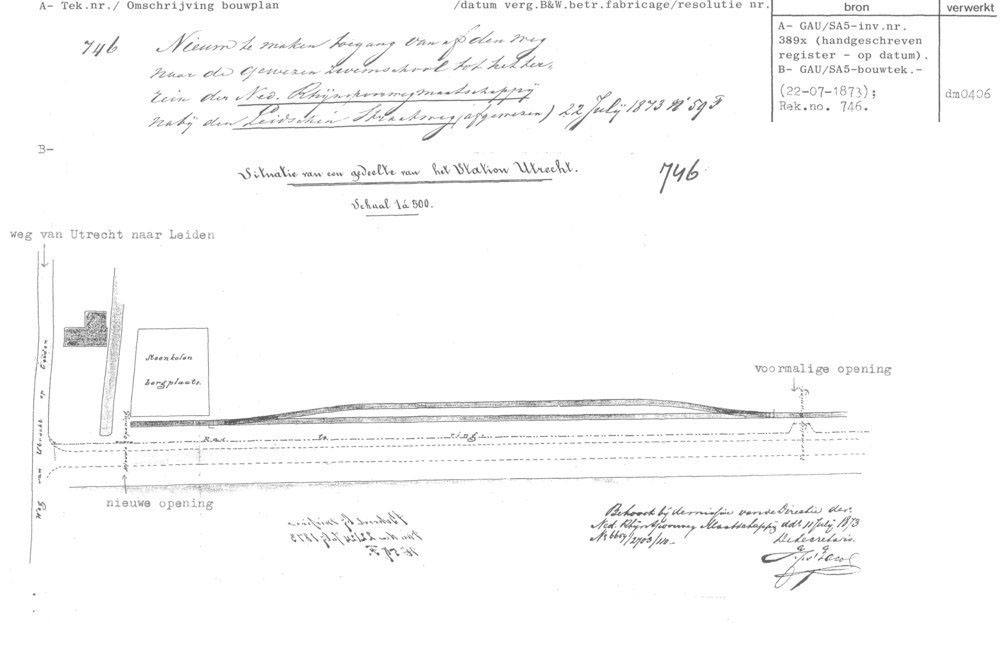 A- Tek.nr./ Omschrijving bouwplan /datum verg.B&W.betr.fabricage/resolutie nr.
bron
verwerkt
746 Nieuw te maken toegang van af den weg
naar de gewezen zwemschool tot het ter-
rein der Ned. Rhijnspoorwegmaatschappij
nabij den Leidschen Straatweg (afgewezen) 22 July 1873 No 59 F
A- GAU/SA5-inv.nr.
389x (handgeschreven
register - op datum).
B- GAU/SA5-bouwtek.-
(22-07-1873);
Rek.no. 746.
dm0406
B-
Situatie van een gedeelte van het Station Utrecht.
746
Schaal 1 à 500.
weg van Utrecht naar Leiden
Steenkolen
bergplaats.
voormalige opening
Weg van Utrecht op Leiden
Nieuwe Opening
Ras te ring
nieuwe opening
Behoort bij de missive van de Directie der
Ned. Rhijnspoorweg Maatschappij dd. 11 July 1873
De Secretaris.